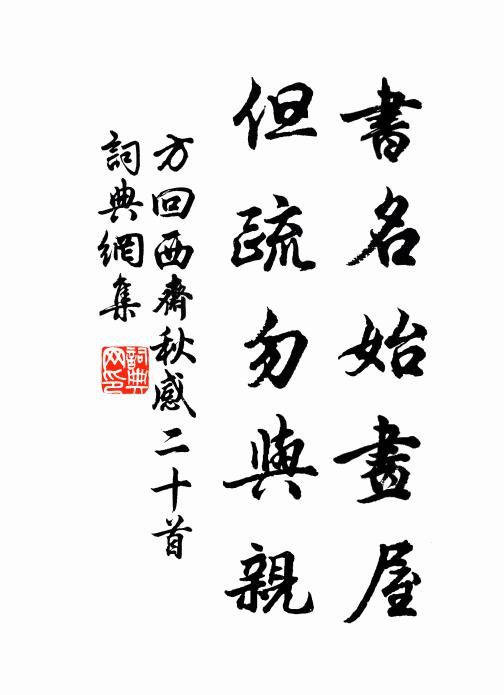 書名始畫屋
但疏勿與親
方回西齋秋感二十首
詞典網集
詞典
网印